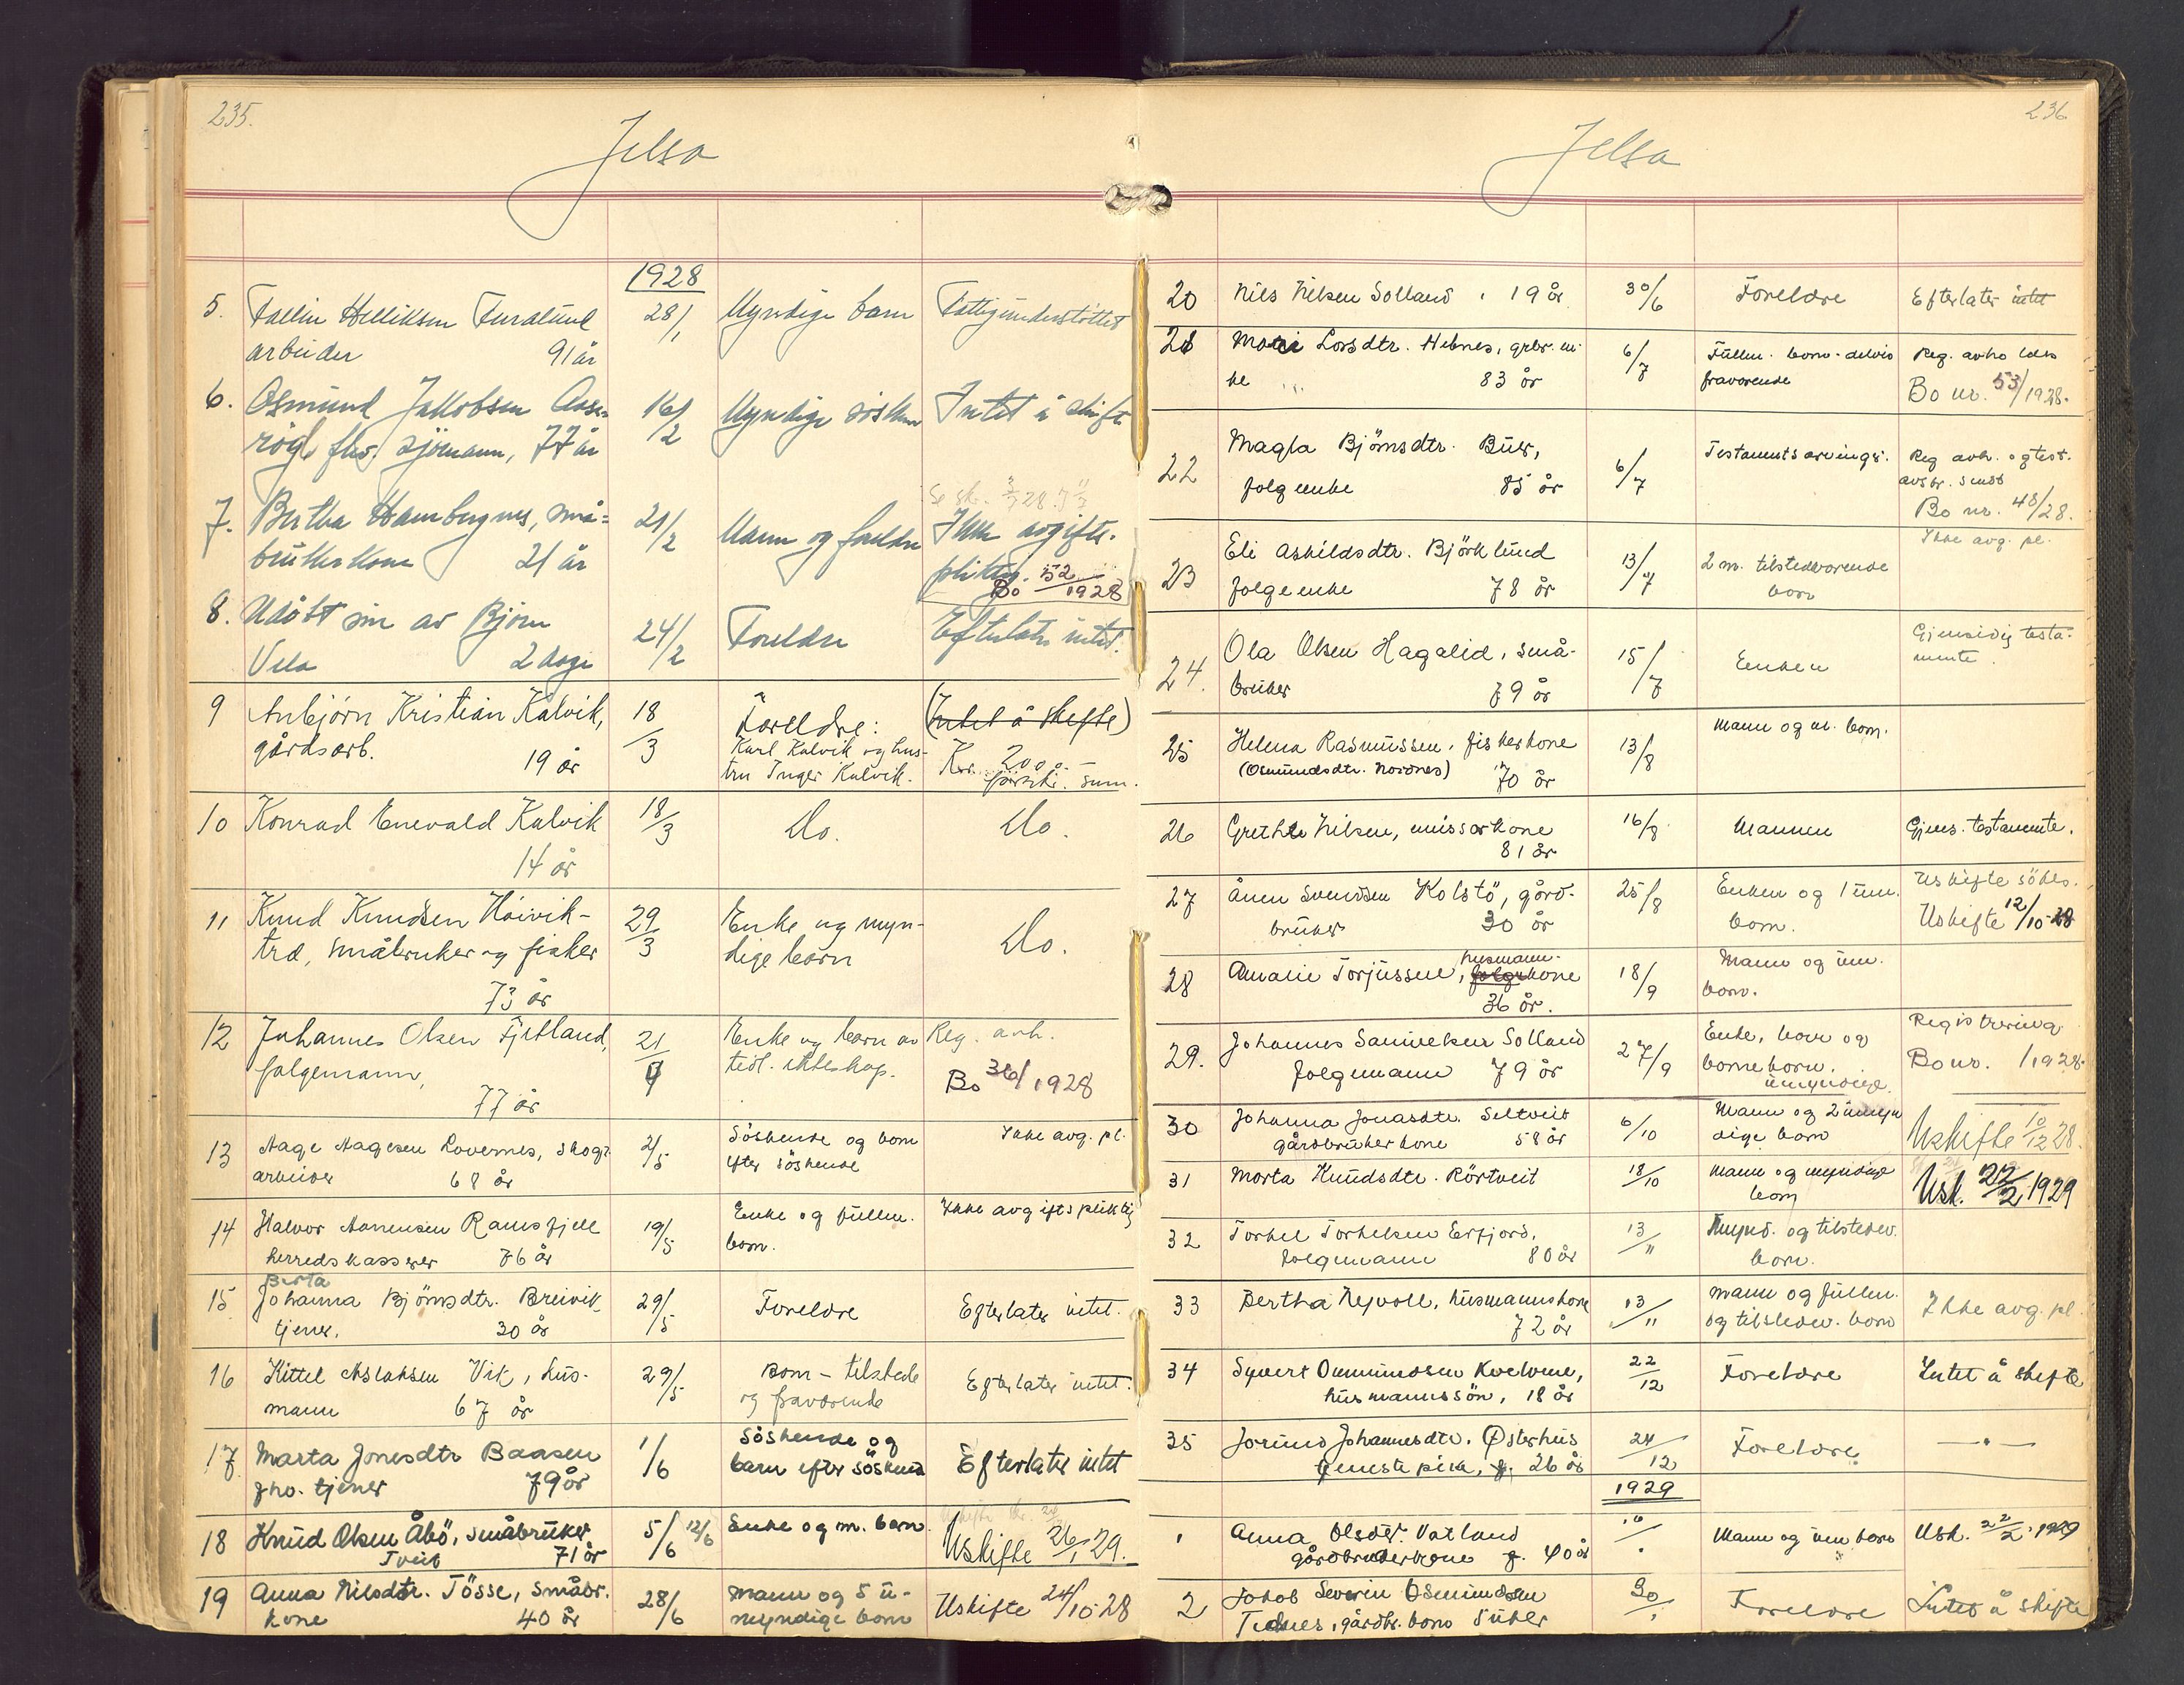 235.
Jelsa
1928
5. Tallin Helliksen Furulund 28/1 Myndige barn Fattigunderstöttet
arbeider 91 år
6. Osmund Jakobsen 16/2 Myndige søsken Intet å skifte
fhv. sjömann, 77 år
7. Bertha Hambergnes, små- 21/2 Mann og foreldre Ikke avgifts-
brukerkone 21 år pliktig. Bo 52/1928
8. Udöbt søn av Bjørn 24/2 Foreldre Efterlater intet.
Vela 2 dage
9 Anbjørn Kristian Kalvik, 18/3 Foreldre: (Intet å skifte)
gårdsarb. 19 år Karl Kalvik og hus-
tru Inger Kalvik. Kr. 2000.-
10 Konrad Enevald Kalvik 18/3 Do. Do.
14 år
11 Knud Knudsen Höivik- 29/3 Enke og myn- Do.
trd, småbruker og fisker dige barn
73 år
12 Johannes Olsen Fjetland, 21/4 Enke og barn av Reg. avh.
folgemann, tidl. ekteskap. Bo 36/1928
77 år
13 Aage Aagesen Lovernes, skogs- 2/5 Söskende og barn Ikke avg. pl.
arbeider 68 år efter söskende
14 Halvor Aanensen Ramsfjell 19/5 Enke og fullm. Ikke avgiftspliktig
herredskasserer 76 år barn.
Berta
15 Johanna Bjömsdtr. Breivik 29/5 Foreldre Efterlater intet.
tjener. 30 år
16 Kittel Aslaksen Vik, hus- 29/5 Barn - tilstede Efterlater intet.
mann 67 år og fraværende
17 Marta Jonesdtr Baasen 1/6 Söskende og Efterlater intet
fhv. tjener 79 år barn efter söskend
18 Knud Olsen Åbö, småbruker 5/6 12/6 Enke og m. barn. Uskifte 26/1 29.
Tveit 71 år
19 Anna Nilsdtr. Tösse, småbr. 28/6 Mann og 5 u- Uskifte 24/10-28
kone 40 år myndige barn
236
Jelsa
20 Nils Nilsen Solland, 19 år 30/6 Foreldre Efterlater intet
21 Mari Larsdtr. Hebnes, grbr. en- 6/7 Fullm. barn - delvis Reg. avholdes
ke 83 år fraværende Bo nr. 53/1928.
22 Magla Bjömsdtr. Bü, 6/7 Testamentsarvinger. Reg avh. og test.
folgeenke 85 år avskr. sendt
Bo nr. 48/28.
23 Eli Askildsdtr. Björklund 13/7 2 m. tilstedeværende Ikke avg. pl.
folgeenke 78 år barn
24. Ola Olsen Hagalid, små- 15/7 Enken Gjensidig testa-
bruker 79 år mente.
25 Helena Rasmussen, fiskerkone 13/8 Mann og m. barn.
(Osmundsdtr. Nordnes) 70 år
26 Grethe Nilsen, kone 16/8 Mannen Gjens. testamente.
81 år
27 Ånen Svendsen Kolstö, gård- 25/8 Enken og 1 um. Uskifte sökes.
bruker 30 år barn. Uskifte 12/10-28
28 Amalie Torjussen, husmann- folgekone 18/9 Mann og um.
36 år. barn.
29. Johannes Samuelsen Solland 27/9 Enke, barn og Registrering
folgemann 79 år barnebarn. Bo nr. /1928.
umyndige.
30 Johanna Jonasdtr. Seltveit 6/10 Mann og 2 umyn Uskifte 10/12 28.
gårdbrukerkone 58 år dige barn
31 Marta Knudsdtr. Rörtveit 18/10 Mann og myndige Usk. 22/2 1929
barn
32 Torkel Torkelsen Erfjord, 13/11 Mynd. og tilstedev.
folgemann 80 år barn.
33 Bertha Nejvoll, husmannskone 13/11 Mann og fullm. Ikke avg. pl.
72 år og tilstedev. barn
34 Syvert Ommundsen Kvelvene, 22/12 Foreldre Intet å skifte
husmannssön, 18 år
35 Jorund Johannesdtr. Østerhus 24/12 Foreldre — " —
tjenestepike, 26 år
1929
1 Anna Olsdtr. Vatland 10/1 Mann og um barn Usk. 22/2 1929
gårdbrukerkone 40 år
2 Jakob Severin Osmundsen 30/1 Foreldre Intet å skifte
Tednes, gårdbr. barn 5 uker